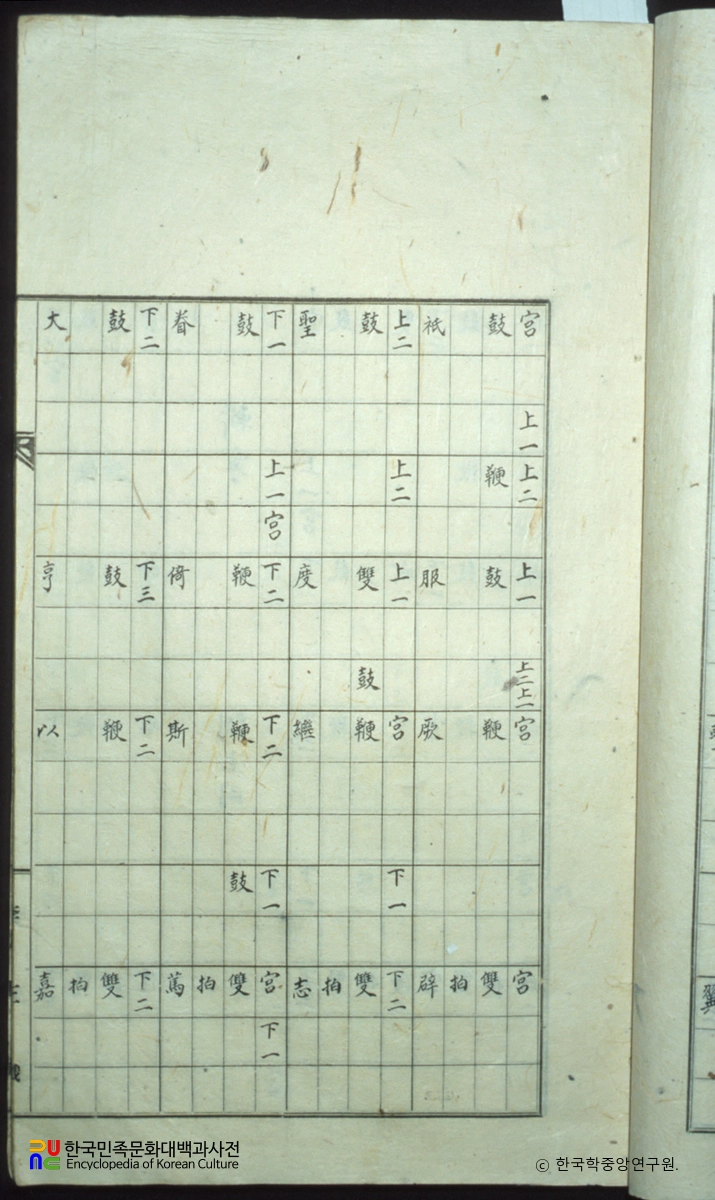 宮 上一 上二 上一 上二 上一 宮 宮
鼓 鞭 鼓 鞭 雙
拍
祇 服 厥 辟
上二 上二 上一 宮 下一 下二
鼓 雙 鼓 鞭 雙
拍
聖 度 繼 志
下一 上一 宮 下二 下二 下一 宮 下一
鼓 鞭 鞭 鼓 雙
拍
眷 倚 斯 篤
下二 下三 下二 下二
鼓 鼓 鞭 雙
拍
大 亨 以 嘉
한국민족문화대백과사전
Encyclopedia of Korean Culture
ⓒ 한국학중앙연구원.